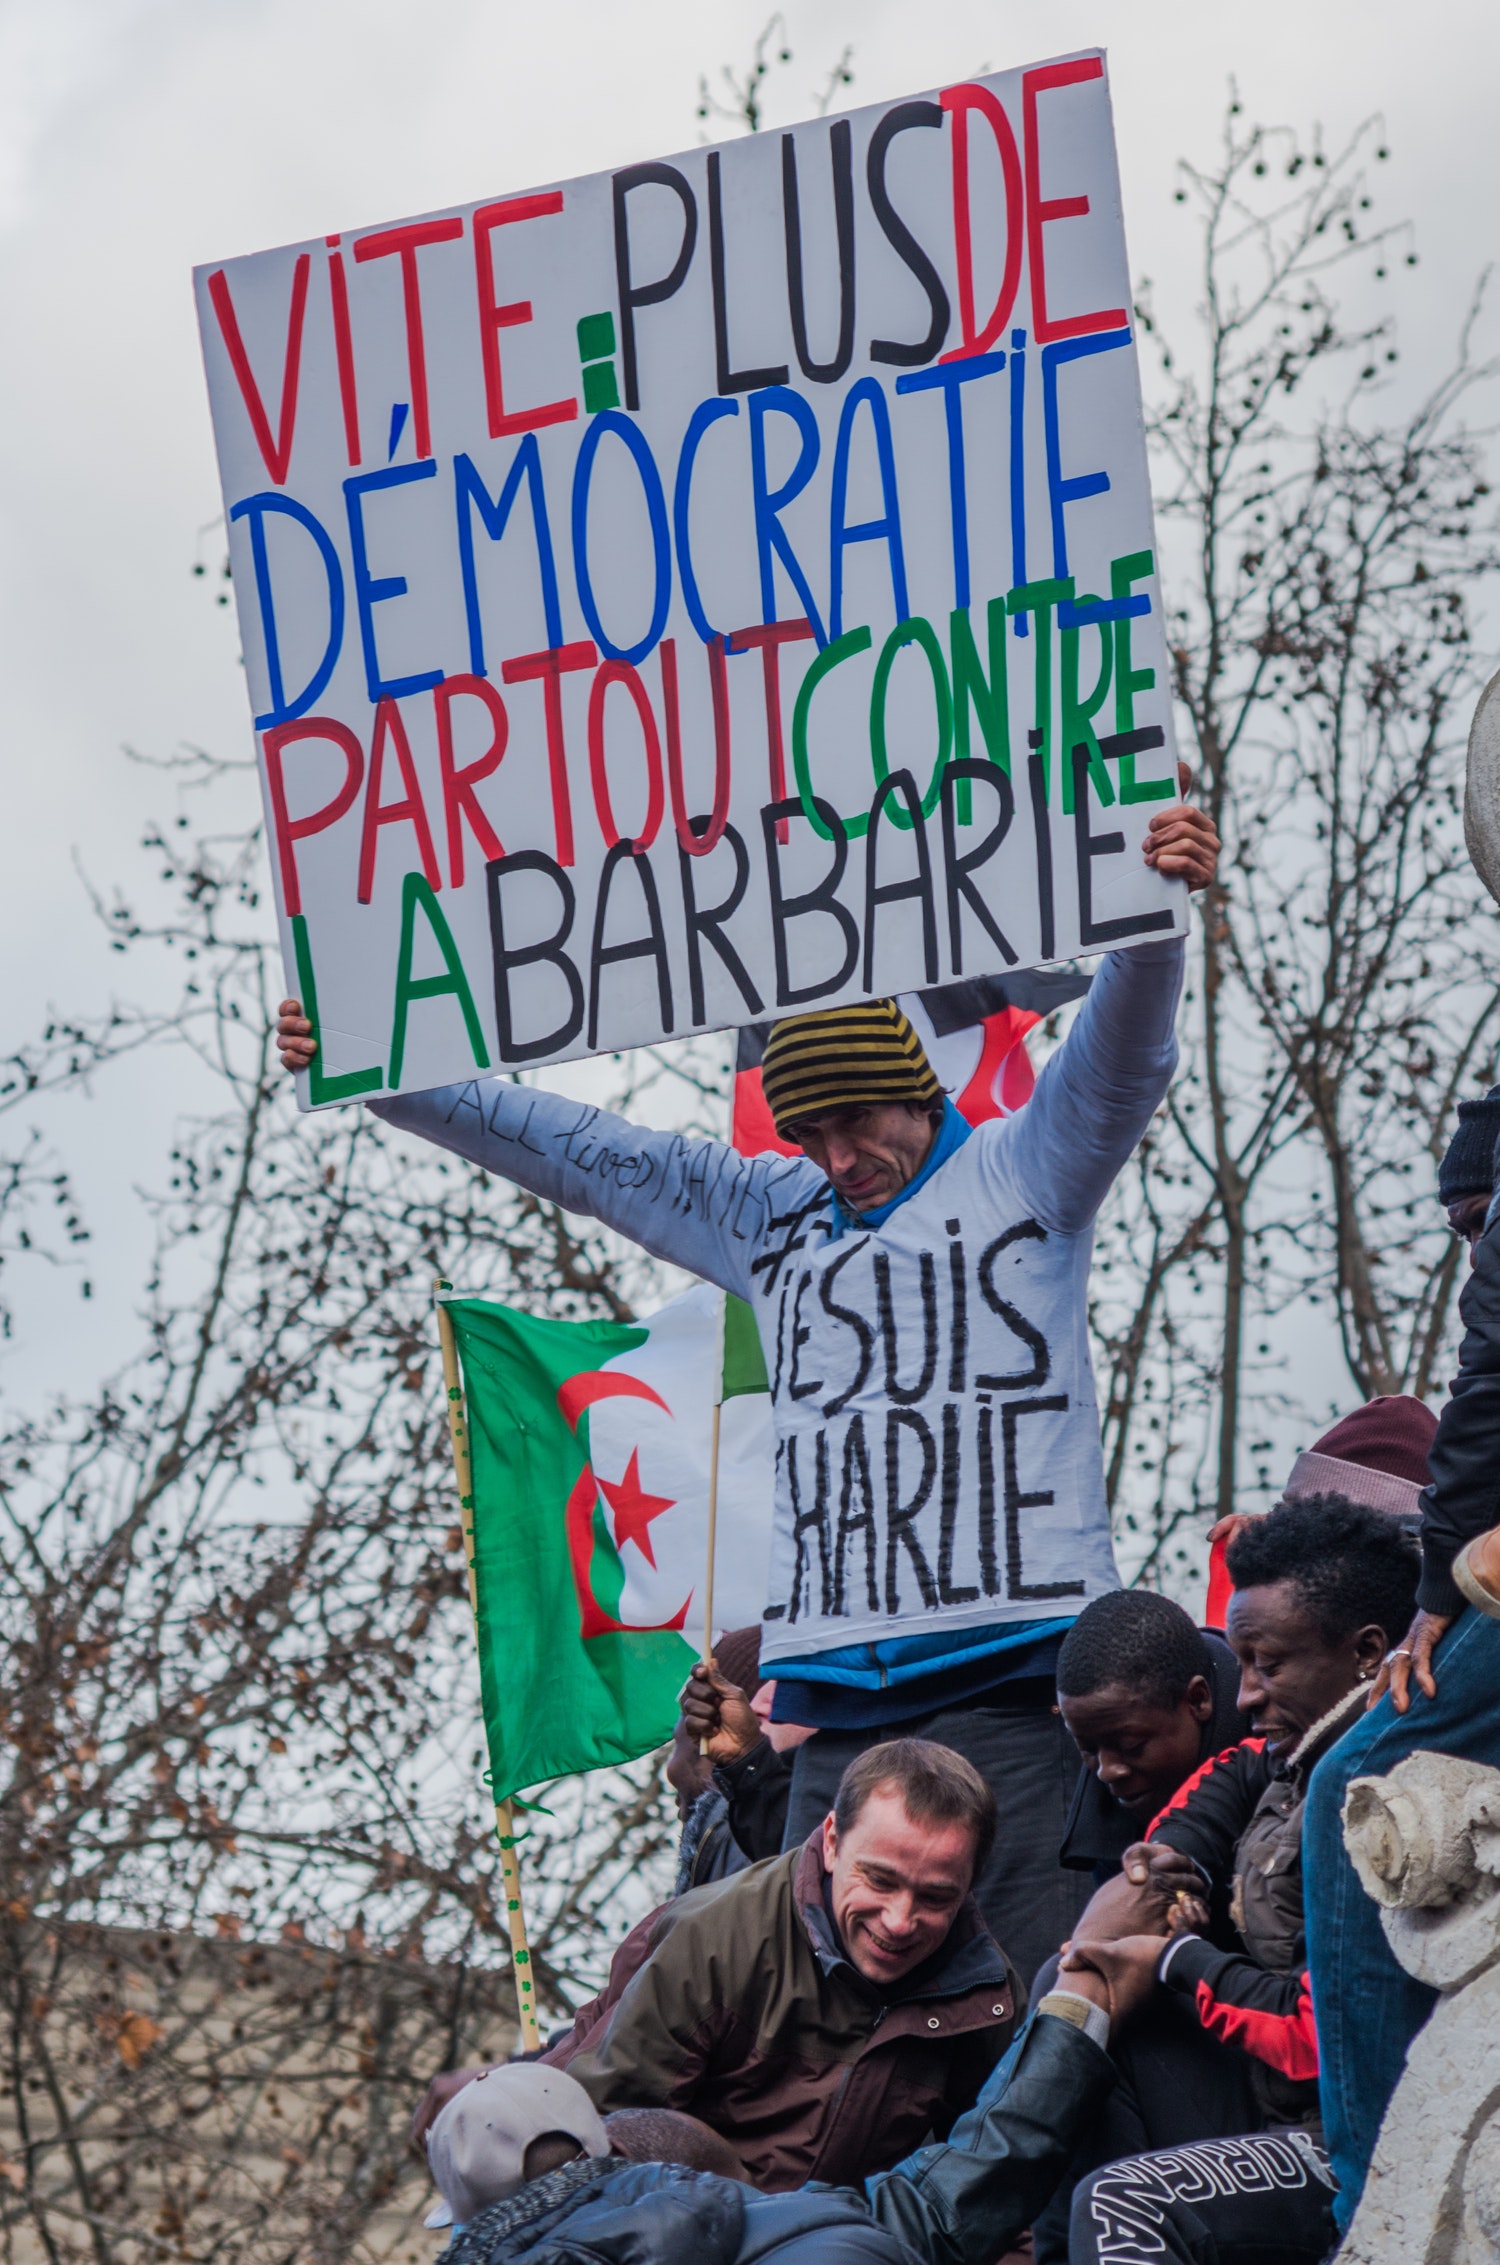 VITE : PLUS DE
DÉMOCRATIE
PARTOUT CONTRE
LA BARBARIE
ALL lives MATTER
#JE SUIS
CHARLIE
ORIGINAL